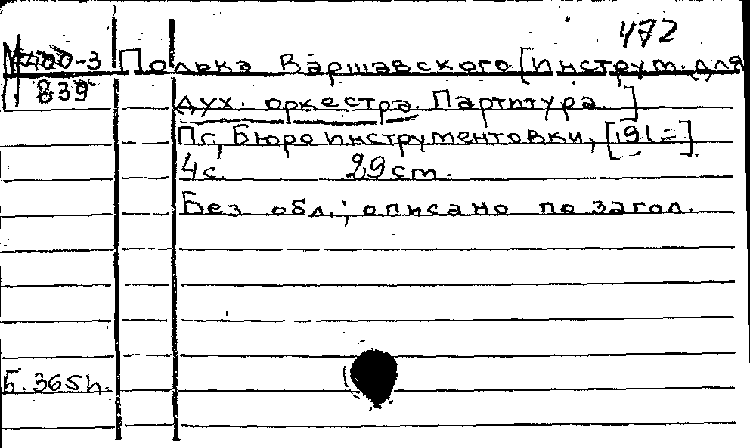 472
М 400-3 Полька Варшавского [Инструм. для
839 дух. оркестра. Партитура.]
Пг, Бюро инструментовки, [191=]
4 с. 29 cm.
Без обл.; описано по загол.
Б. 365н.